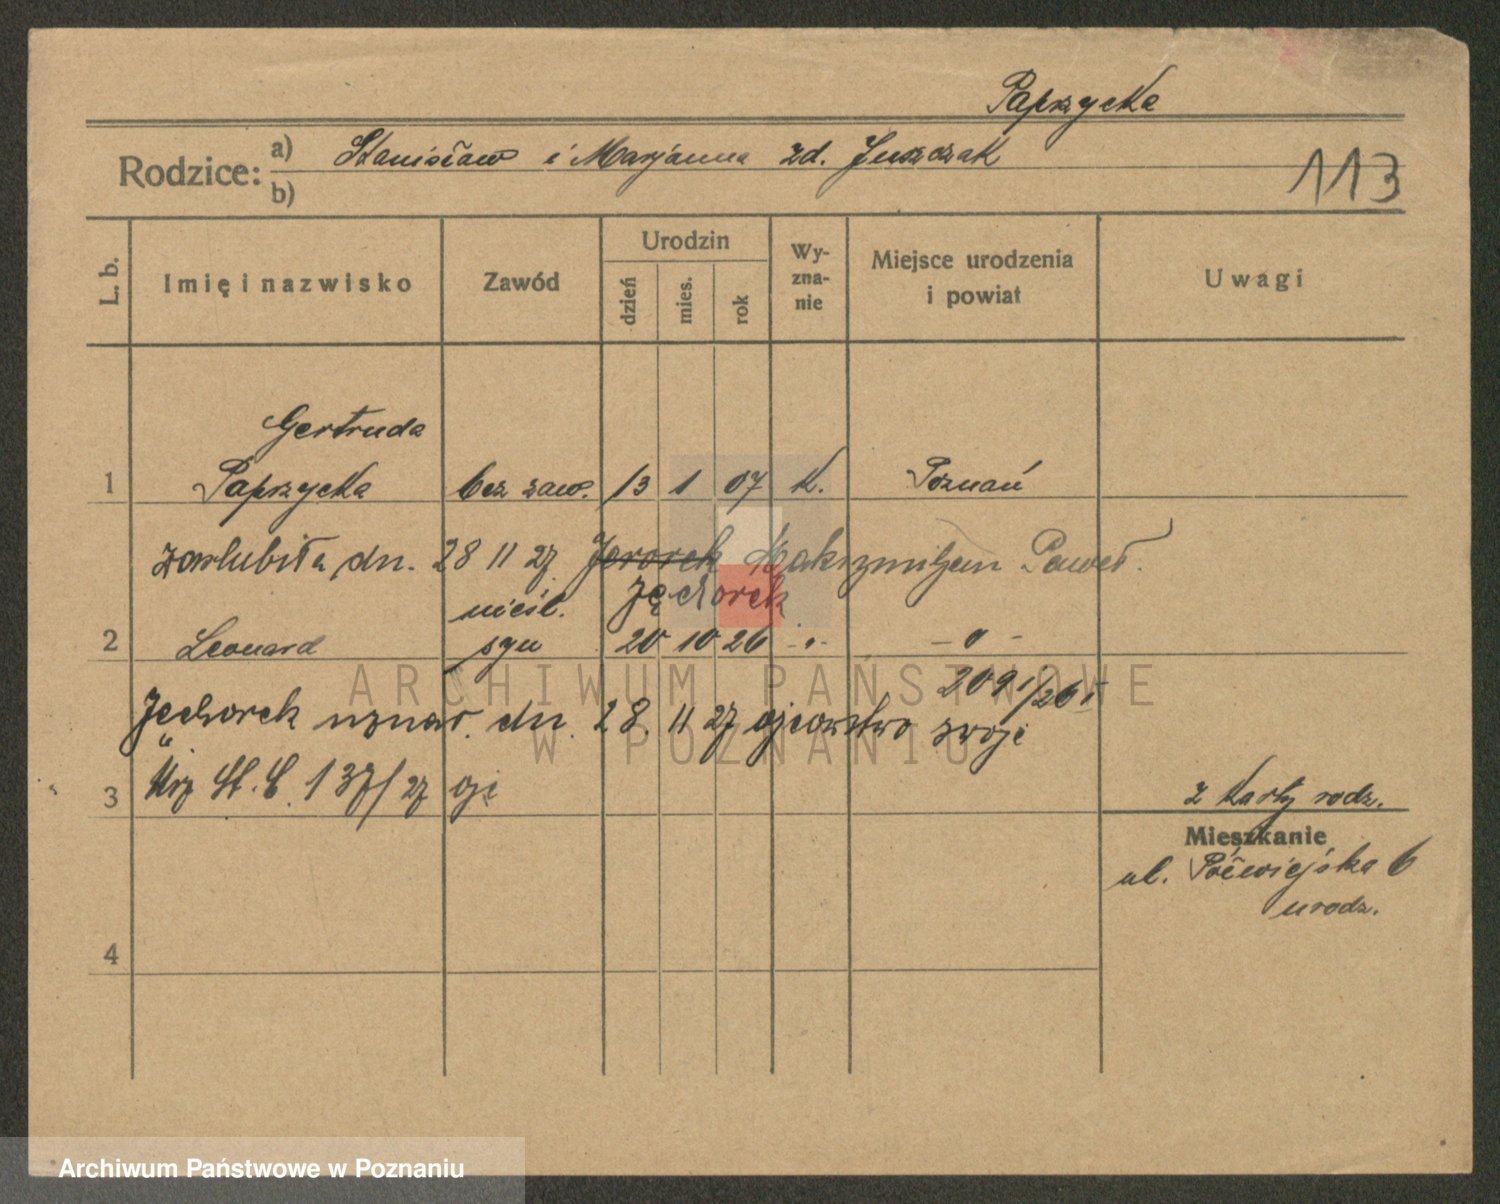 Paprzycka
Rodzice: a) Stanisław i Marjanna zd. Juszczak
b)
113
L. b.
Imię i nazwisko
Zawód
Urodzin
dzień
mies.
rok
Wy-
zna-
nie
Miejsce urodzenia
i powiat
Uwagi
Gertruda
1 Paprzycka bez zaw. 13 1 07 k. Poznań
zaślubiła dn. 28 11 27 Jerorek Maksymiljan Paweł.
nieśl. Jęchorek
2 Leonard syn 20 10 26 -"- - " -
2091/26 I
Jęchorek uznał dn. 28. 11 27 ojcowstwo swoje
3 Urz St. C. 137/27
z karty rodz.
Mieszkanie
ul. Półwiejska 6
urodz.
4
ARCHIWUM PAŃSTWOWE
W POZNANIU
Archiwum Państwowe w Poznaniu